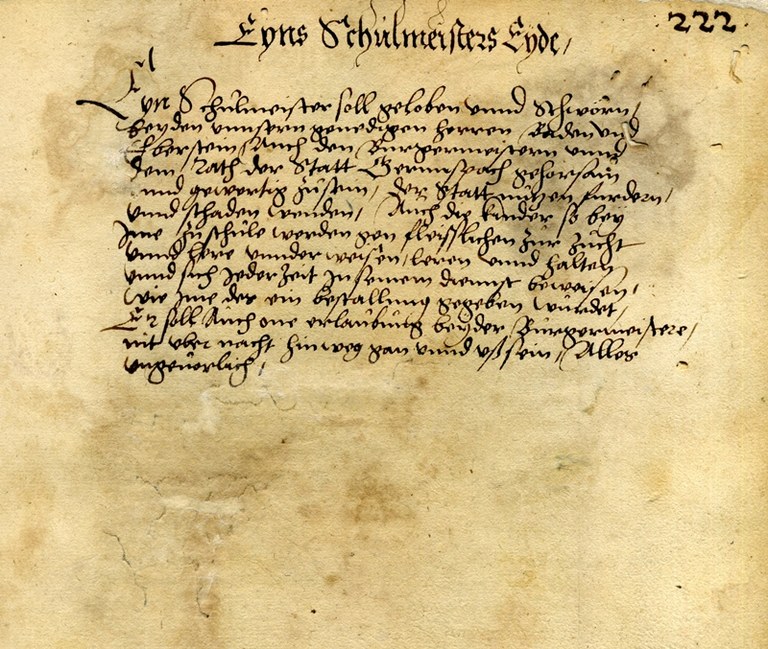 222
Eyns Schulmeisters Eyde,
Eyn Schulmeister soll geloben unnd Schworn,
beyden unnsern genedigen herren Baden und
Eberstein, Auch den Burgermeistern unnd
dem Rath der Statt Gernnspach gehorsam
unnd gewertig zusein, der Statt nutzen furdern,
unnd schaden wenden, Auch die kinder so bey
Ime zu schule werden gen fleisslichen zur zucht
unnd here unnderweisen, leren unnd halten
unnd sich Jeder Zeit In seinem diennst beweisen,
wie Ime des ein bestallung gegeben wurdet,
Er soll Auch one erlaubung beyder Burgermeistere,
nit uber nacht hinweg gan unnd ußsein, Alles
ungeverlich,